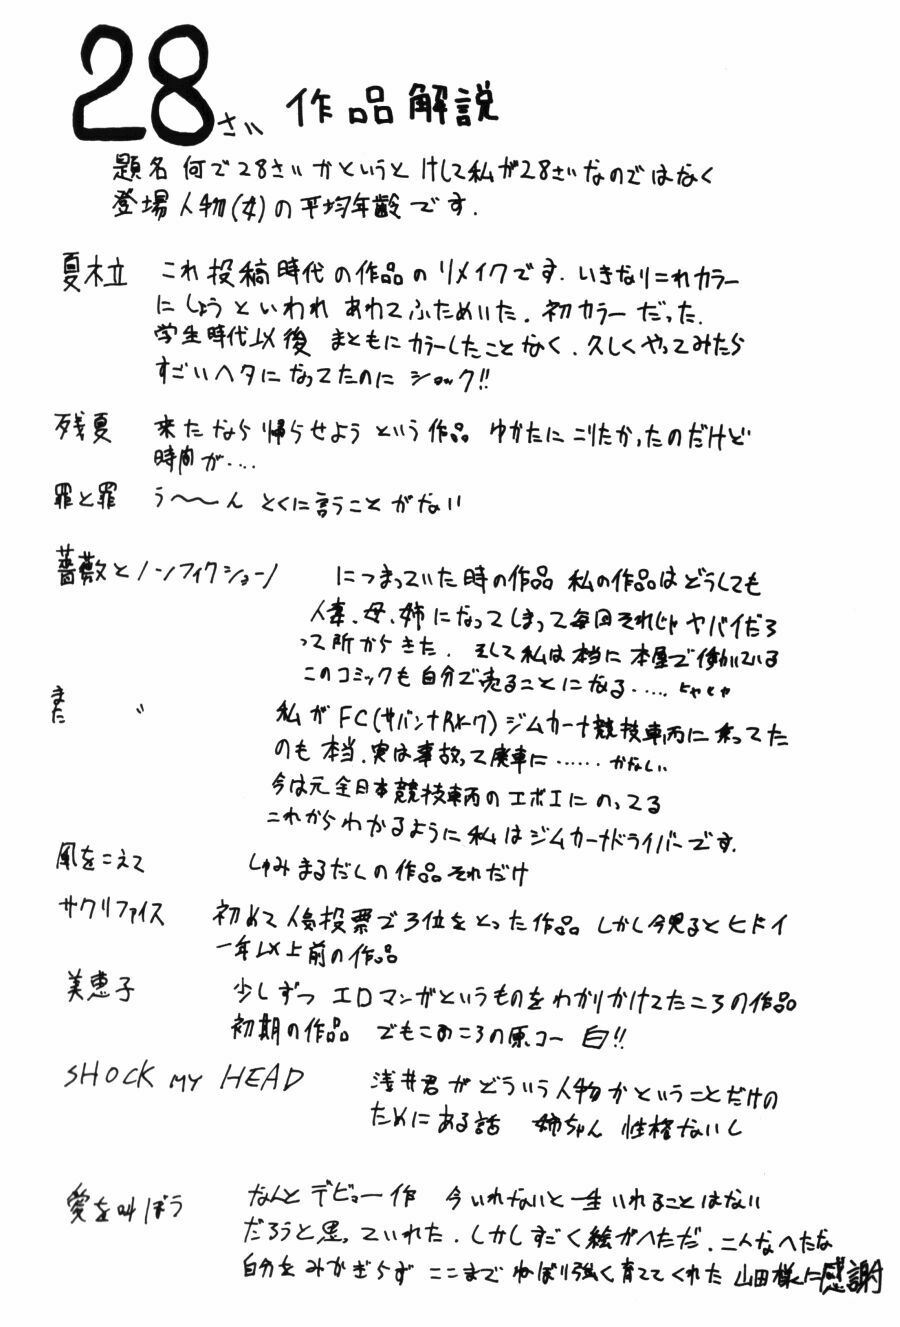 28さい 作品解説
題名 何で28さい かというと けして私が28さいなのではなく
登場人物(女)の平均年齢です.
夏木立 これ 投稿時代の作品の リメイクです. いきなりこれカラー
にしようといわれ あわてふためいた. 初カラーだった.
学生時代以後 まともにカラーしたことなく. 久しくやってみたら
すごいヘタになってたのに ショック!!
残夏 来たなら帰らせよう という作品 ゆかたに こりたかったのだけど
時間が....
罪と罪 う〜〜ん とくに言うことがない
薔薇とノンフィクション につまっていた時の作品 私の作品はどうしても
人妻、母、姉になってしまって毎回それじゃヤバイだろ
って所からきた. そして私は本当に本屋で働いている
このコミックも自分で売ることになる..... とやとや
また 〃 私がFC(サバンナRX-7)ジムカーナ競技車両に乗ってた
のも本当.実は事故って廃車に...... かなしい
今は元全日本競技車両のエボIにのってる
これからわかるように私はジムカーナドライバーです.
風をこえて しゅみまるだしの作品それだけ
サクリファイス 初めて人気投票で3位をとった作品 しかし今見るとヒドイ
一年以上前の作品
美恵子 少しずつ エロマンガというものをわかりかけてたころの作品
初期の作品 でもこのころの原コー 白!!
SHOCK MY HEAD 浅井君がどういう人物かということだけの
ためにある話 姉ちゃん 性格ないし
愛を叫ぼう なんとデビュー作 今いれないと一生いれることはない
だろうと思っていれた. しかしすごく絵がへただ. こんなへたな
自分をみかぎらず ここまで ねばり強く育ててくれた 山田様に感謝